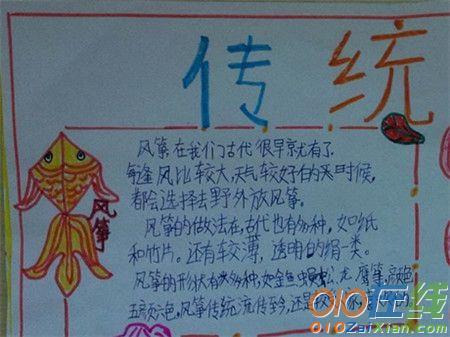 传统
风筝在我们古代很早就有了
每逢风比较大,天气较好的时候,
都会选择去野外放风筝。
风筝的做法在古代也有多种,如纸
和竹片。还有较薄,透明的绢一类。
风筝的形状有多种,如金鱼 龙、鹰等,颜色
五颜六色,风筝传统流传至今,还是
风筝
010在线
010ZaiXian.com